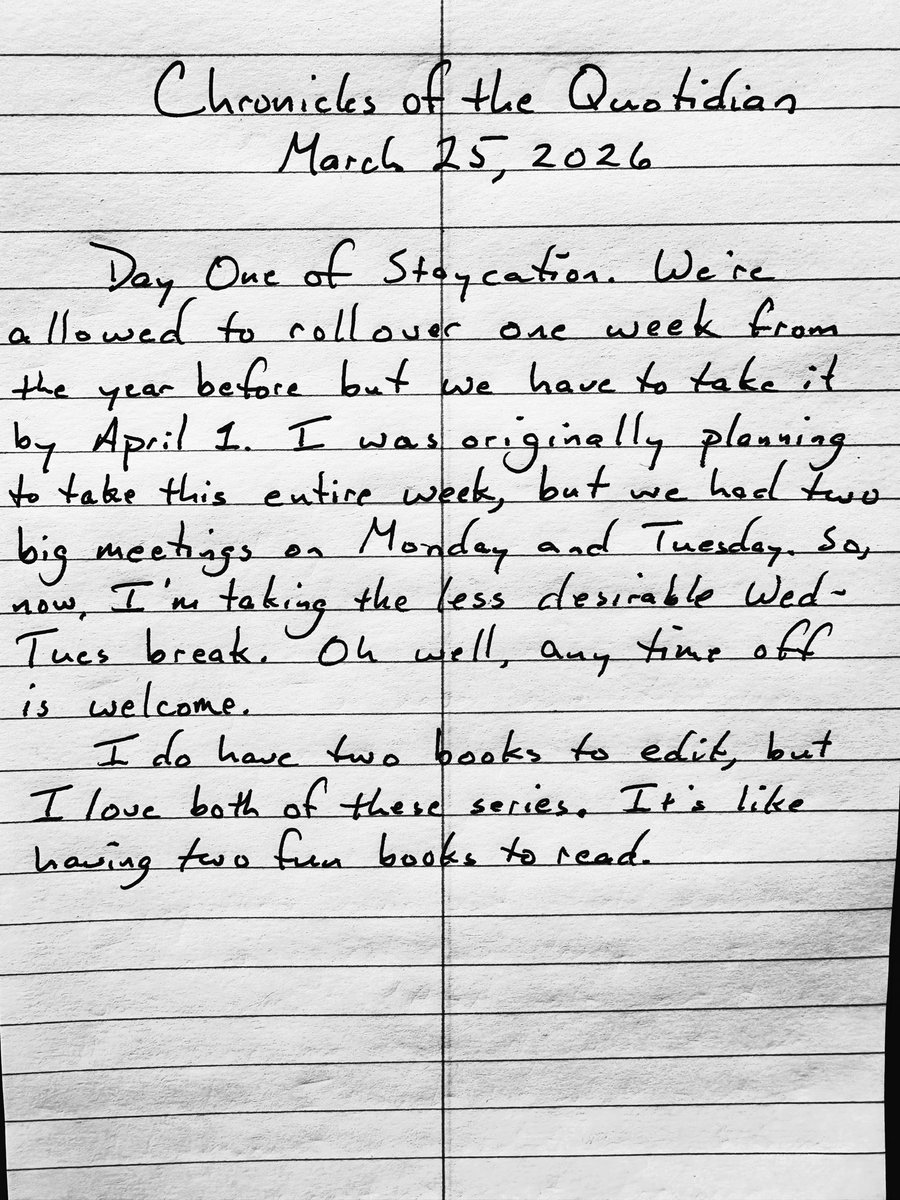 Chronicles of the Quotidian
March 25, 2026
Day One of Staycation. We're
allowed to rollover one week from
the year before but we have to take it
by April 1. I was originally planning
to take this entire week, but we had two
big meetings on Monday and Tuesday. So,
now, I'm taking the less desirable Wed-
Tues break. Oh well, any time off
is welcome.
I do have two books to edit, but
I love both of these series. It's like
having two fun books to read.